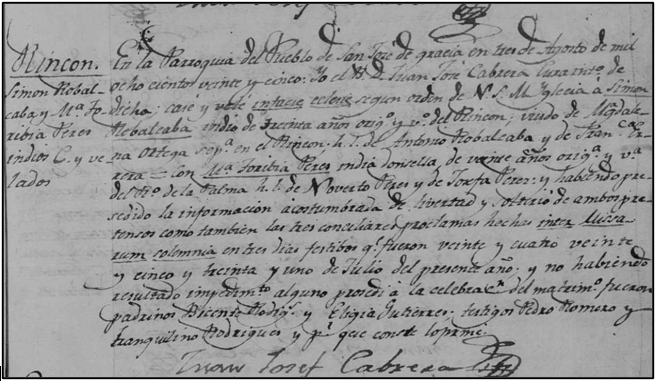 Rincon.
Simon Robal-
caba y Ma. To-
ribia Peres
indios C. y ve-
lados
En la Parroquia del Pueblo de San José de gracia en tres de Agosto de mil
ocho cientos veinte y cinco: Yo el B. D. Juan José Cabrera Cura intno. de
dicha; case y vele infacie eclecie segun orden de N. S. M. Yglecia à Simon
Robalcaba indio de treinta años orig.o y v.o del Rincon, viudo de Magdale-
na Ortega sep.a en el Rincon: h. l. de Antonio Robalcaba y de Fran.ca
rera = con Ma. Toribia Peres india donsella de veinte años orig.a y v.a
del de la Palma h. l. de Noverto Peres y de Josefa Perez: y habiendo pre-
sedido la informacion acostumbrada de livertad y solterio de ambos pre-
tensos como tambien las tres conciliares proclamas hechas inter Missa-
rum solemnia en tres dias festibos q.e fueron veinte y cuatro veinte
y cinco y treinta y uno de Julio del presente año; y no habiendo
resultado impedim.to alguno prosedi à la celebra.cn del matrim.o fueron
padrinos Vicente Rodrig.s y Eligia Gutierres: testigos Pedro Romero y
tranquilino Rodrigues y p.a que conste lo firmé.
Juan Josef Cabrera